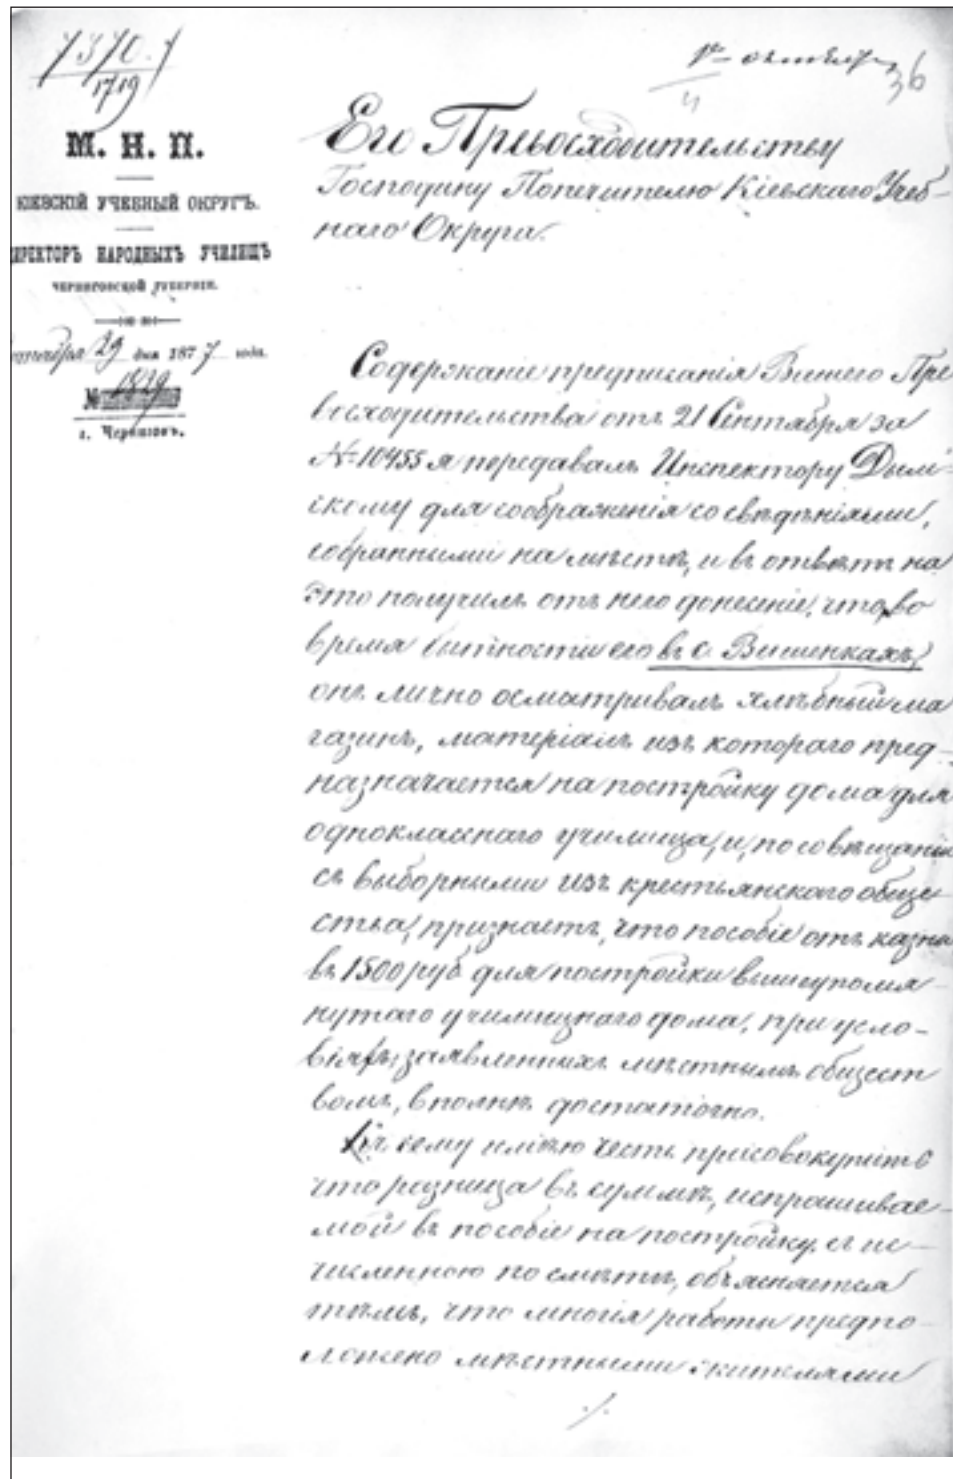 7370.7
1719
1го октября
36
М. Н. П.
КІЕВСКОЙ УЧЕБНЫЙ ОКРУГЪ.
ДИРЕКТОРЪ НАРОДНЫХЪ УЧИЛИЩЪ
ЧЕРНИГОВСКОЙ ГУБЕРНІИ.
Сентября 29 дня 1877 года.
№ 1829
г. Черниговъ.
Его Превосходительству
Господину Попечителю Кіевскаго Учеб-
наго Округа.
Содержаніе предписанія Вашего Пре
восходительства отъ 21 Сентября за
№ 10455 я передавалъ Инспектору Дым-
скому для соображенія со свѣдѣніями,
собранными на мѣстѣ, и въ отвѣтъ на
это получилъ отъ него донесеніе, что, во
время бытности его въ с. Вишенкахъ,
онъ лично осматривалъ хлѣбный ма
газинъ, матеріалъ изъ котораго пред-
назначается на постройку дома для
однокласснаго училища, и, по совѣщаніи
съ выборными изъ крестьянскаго обще-
ства, признаетъ, что пособіе отъ казны
въ 1500 руб для постройки вышеупомя-
нутаго училищнаго дома, при усло-
віяхъ, заявленныхъ мѣстнымъ общест
вомъ, вполнѣ достаточно.
Къ сему имѣю честь присовокупить
что разница въ суммѣ, испрашивае-
мой въ пособіе на постройку, съ ис-
численною по смѣтѣ, объясняется
тѣмъ, что многія работы предпо-
ложено мѣстными жителями
./.